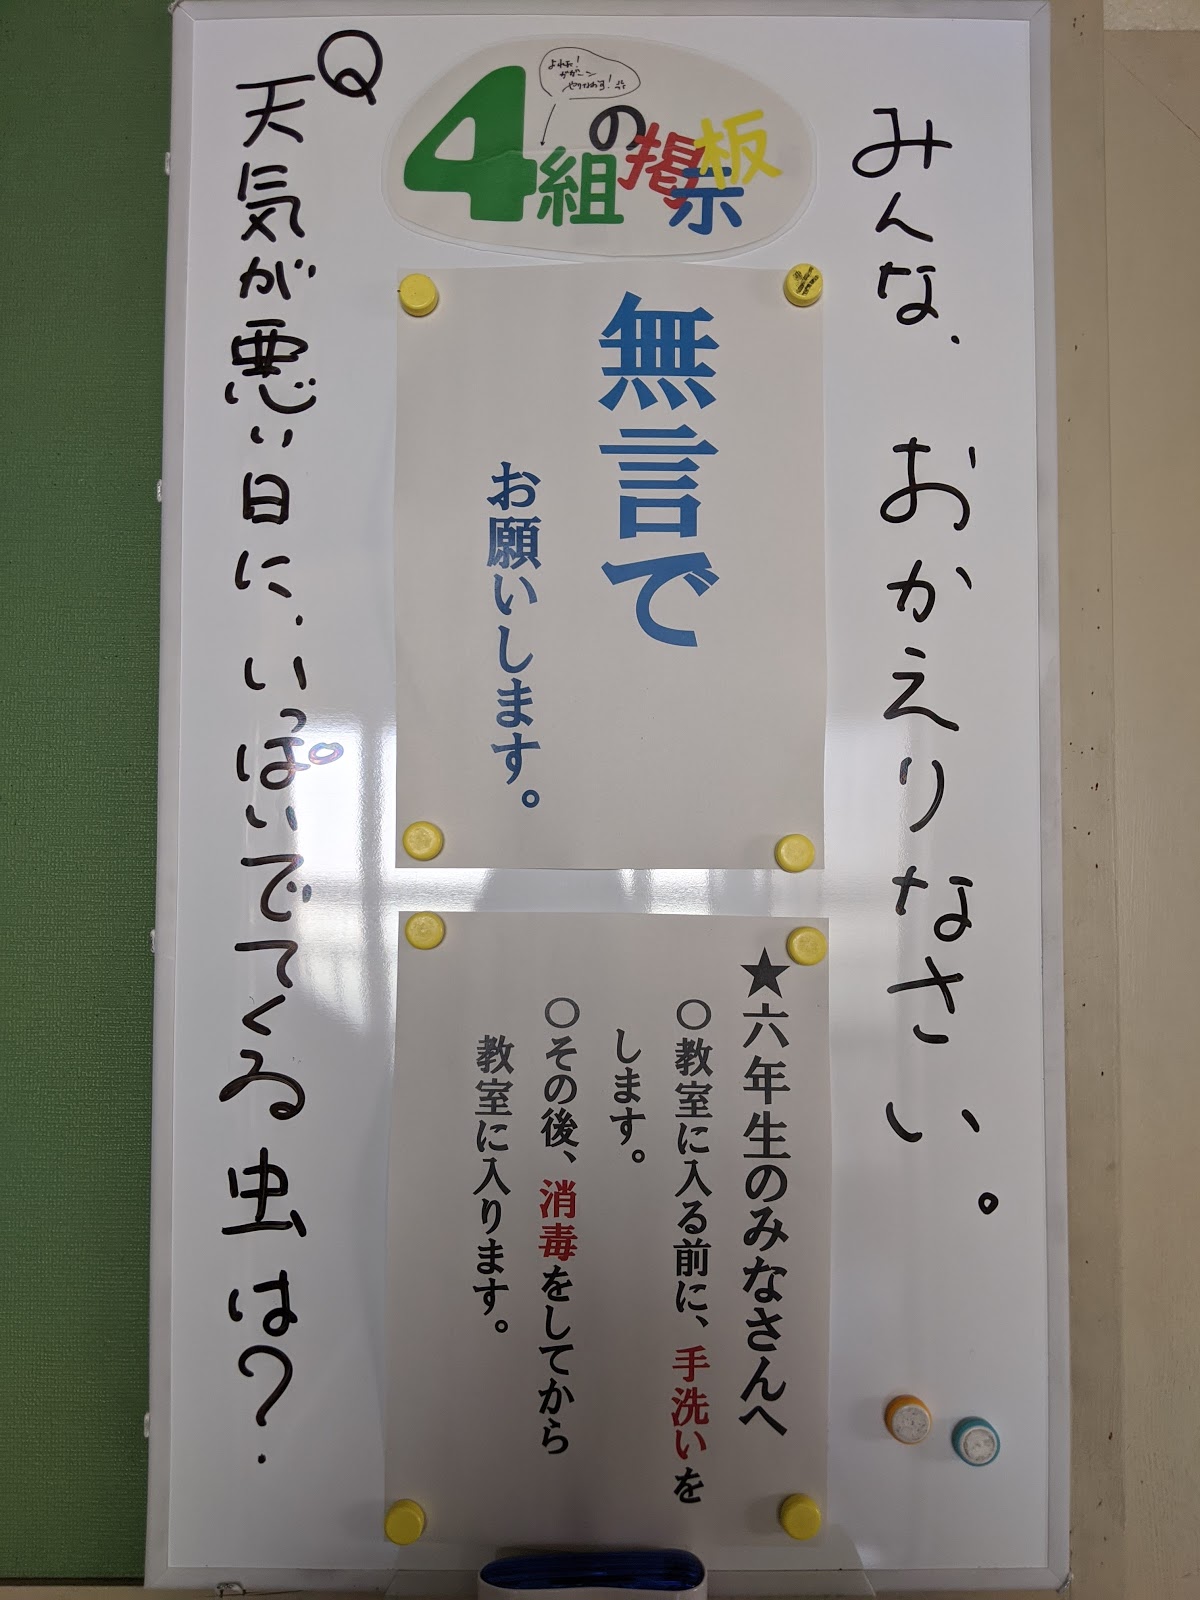 4組の掲示板
よれた!
ガガーン
やりなおす!
みんな、おかえりなさい。
無言で
お願いします。
★六年生のみなさんへ
○教室に入る前に、手洗いを
します。
○その後、消毒をしてから
教室に入ります。
Q
天気が悪い日に、いっぱいでてくる虫は?